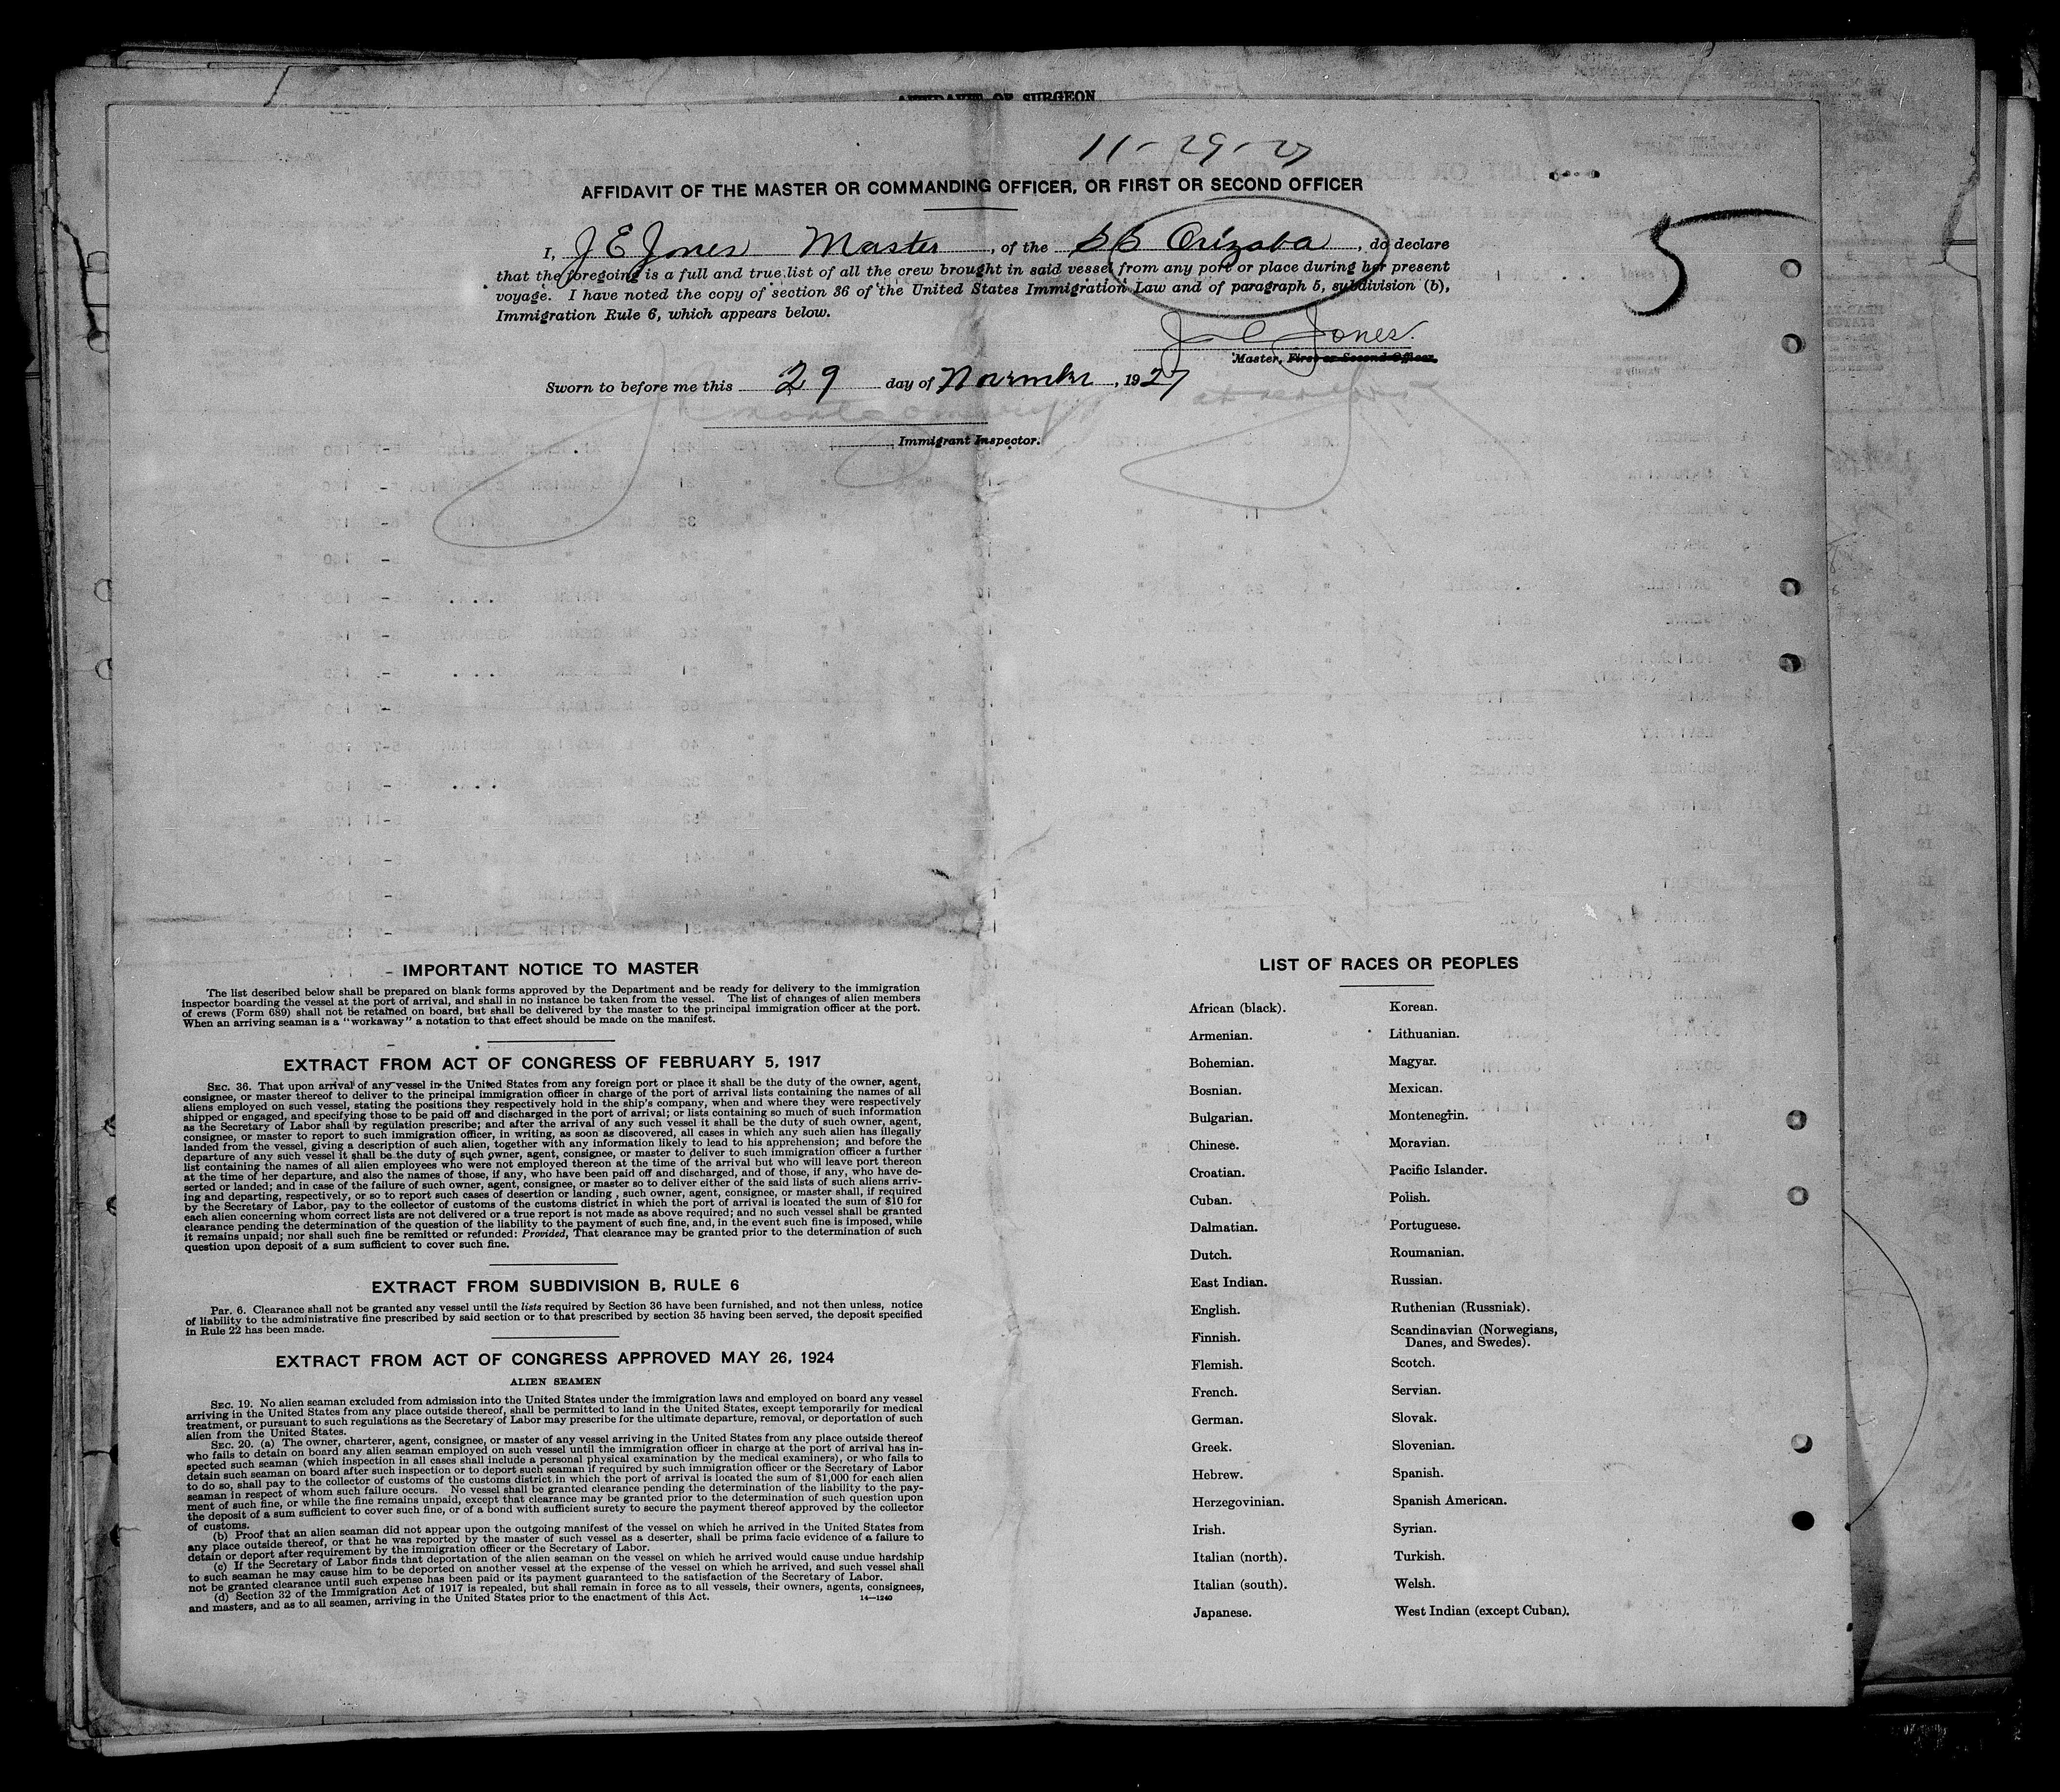 AFFIDAVIT OF SURGEON
11-29-27
AFFIDAVIT OF THE MASTER OR COMMANDING OFFICER, OR FIRST OR SECOND OFFICER
5
I, J E Jones Master, of the SS Orizaba, do declare
that the foregoing is a full and true list of all the crew brought in said vessel from any port or place during her present
voyage. I have noted the copy of section 36 of the United States Immigration Law and of paragraph 5, subdivision (b),
Immigration Rule 6, which appears below.
J E Jones.
Master, First or Second Officer.
Sworn to before me this 29 day of November, 1927
Immigrant Inspector.
IMPORTANT NOTICE TO MASTER
The list described below shall be prepared on blank forms approved by the Department and be ready for delivery to the immigration
inspector boarding the vessel at the port of arrival, and shall in no instance be taken from the vessel. The list of changes of alien members
of crews (Form 689) shall not be retained on board, but shall be delivered by the master to the principal immigration officer at the port.
When an arriving seaman is a "workaway" a notation to that effect should be made on the manifest.
EXTRACT FROM ACT OF CONGRESS OF FEBRUARY 5, 1917
SEC. 36. That upon arrival of any vessel in the United States from any foreign port or place it shall be the duty of the owner, agent,
consignee, or master thereof to deliver to the principal immigration officer in charge of the port of arrival lists containing the names of all
aliens employed on such vessel, stating the positions they respectively hold in the ship's company, when and where they were respectively
shipped or engaged, and specifying those to be paid off and discharged in the port of arrival; or lists containing so much of such information
as the Secretary of Labor shall by regulation prescribe; and after the arrival of any such vessel it shall be the duty of such owner, agent,
consignee, or master to report to such immigration officer, in writing, as soon as discovered, all cases in which any such alien has illegally
landed from the vessel, giving a description of such alien, together with any information likely to lead to his apprehension; and before the
departure of any such vessel it shall be the duty of such owner, agent, consignee, or master to deliver to such immigration officer a further
list containing the names of all alien employees who were not employed thereon at the time of the arrival but who will leave port thereon
at the time of her departure, and also the names of those, if any, who have been paid off and discharged, and of those, if any, who have de-
serted or landed; and in case of the failure of such owner, agent, consignee, or master so to deliver either of the said lists of such aliens arriv-
ing and departing, respectively, or so to report such cases of desertion or landing , such owner, agent, consignee, or master shall, if required
by the Secretary of Labor, pay to the collector of customs of the customs district in which the port of arrival is located the sum of $10 for
each alien concerning whom correct lists are not delivered or a true report is not made as above required; and no such vessel shall be granted
clearance pending the determination of the question of the liability to the payment of such fine, and, in the event such fine is imposed, while
it remains unpaid; nor shall such fine be remitted or refunded: Provided, That clearance may be granted prior to the determination of such
question upon deposit of a sum sufficient to cover such fine.
EXTRACT FROM SUBDIVISION B, RULE 6
Par. 6. Clearance shall not be granted any vessel until the lists required by Section 36 have been furnished, and not then unless, notice
of liability to the administrative fine prescribed by said section or to that prescribed by section 35 having been served, the deposit specified
in Rule 22 has been made.
EXTRACT FROM ACT OF CONGRESS APPROVED MAY 26, 1924
ALIEN SEAMEN
SEC. 19. No alien seaman excluded from admission into the United States under the immigration laws and employed on board any vessel
arriving in the United States from any place outside thereof, shall be permitted to land in the United States, except temporarily for medical
treatment, or pursuant to such regulations as the Secretary of Labor may prescribe for the ultimate departure, removal, or deportation of such
alien from the United States.
SEC. 20. (a) The owner, charterer, agent, consignee, or master of any vessel arriving in the United States from any place outside thereof
who fails to detain on board any alien seaman employed on such vessel until the immigration officer in charge at the port of arrival has in-
spected such seaman (which inspection in all cases shall include a personal physical examination by the medical examiners), or who fails to
detain such seaman on board after such inspection or to deport such seaman if required by such immigration officer or the Secretary of Labor
to do so, shall pay to the collector of customs of the customs district in which the port of arrival is located the sum of $1,000 for each alien
seaman in respect of whom such failure occurs. No vessel shall be granted clearance pending the determination of the liability to the pay-
ment of such fine, or while the fine remains unpaid, except that clearance may be granted prior to the determination of such question upon
the deposit of a sum sufficient to cover such fine, or of a bond with sufficient surety to secure the payment thereof approved by the collector
of customs.
(b) Proof that an alien seaman did not appear upon the outgoing manifest of the vessel on which he arrived in the United States from
any place outside thereof, or that he was reported by the master of such vessel as a deserter, shall be prima facie evidence of a failure to
detain or deport after requirement by the immigration officer or the Secretary of Labor.
(c) If the Secretary of Labor finds that deportation of the alien seaman on the vessel on which he arrived would cause undue hardship
to such seaman he may cause him to be deported on another vessel at the expense of the vessel on which he arrived, and such vessel shall
not be granted clearance until such expense has been paid or its payment guaranteed to the satisfaction of the Secretary of Labor.
(d) Section 32 of the Immigration Act of 1917 is repealed, but shall remain in force as to all vessels, their owners, agents, consignees,
and masters, and as to all seamen, arriving in the United States prior to the enactment of this Act.
14—1240
LIST OF RACES OR PEOPLES
African (black).
Armenian.
Bohemian.
Bosnian.
Bulgarian.
Chinese.
Croatian.
Cuban.
Dalmatian.
Dutch.
East Indian.
English.
Finnish.
Flemish.
French.
German.
Greek.
Hebrew.
Herzegovinian.
Irish.
Italian (north).
Italian (south).
Japanese.
Korean.
Lithuanian.
Magyar.
Mexican.
Montenegrin.
Moravian.
Pacific Islander.
Polish.
Portuguese.
Roumanian.
Russian.
Ruthenian (Russniak).
Scandinavian (Norwegians,
Danes, and Swedes).
Scotch.
Servian.
Slovak.
Slovenian.
Spanish.
Spanish American.
Syrian.
Turkish.
Welsh.
West Indian (except Cuban).